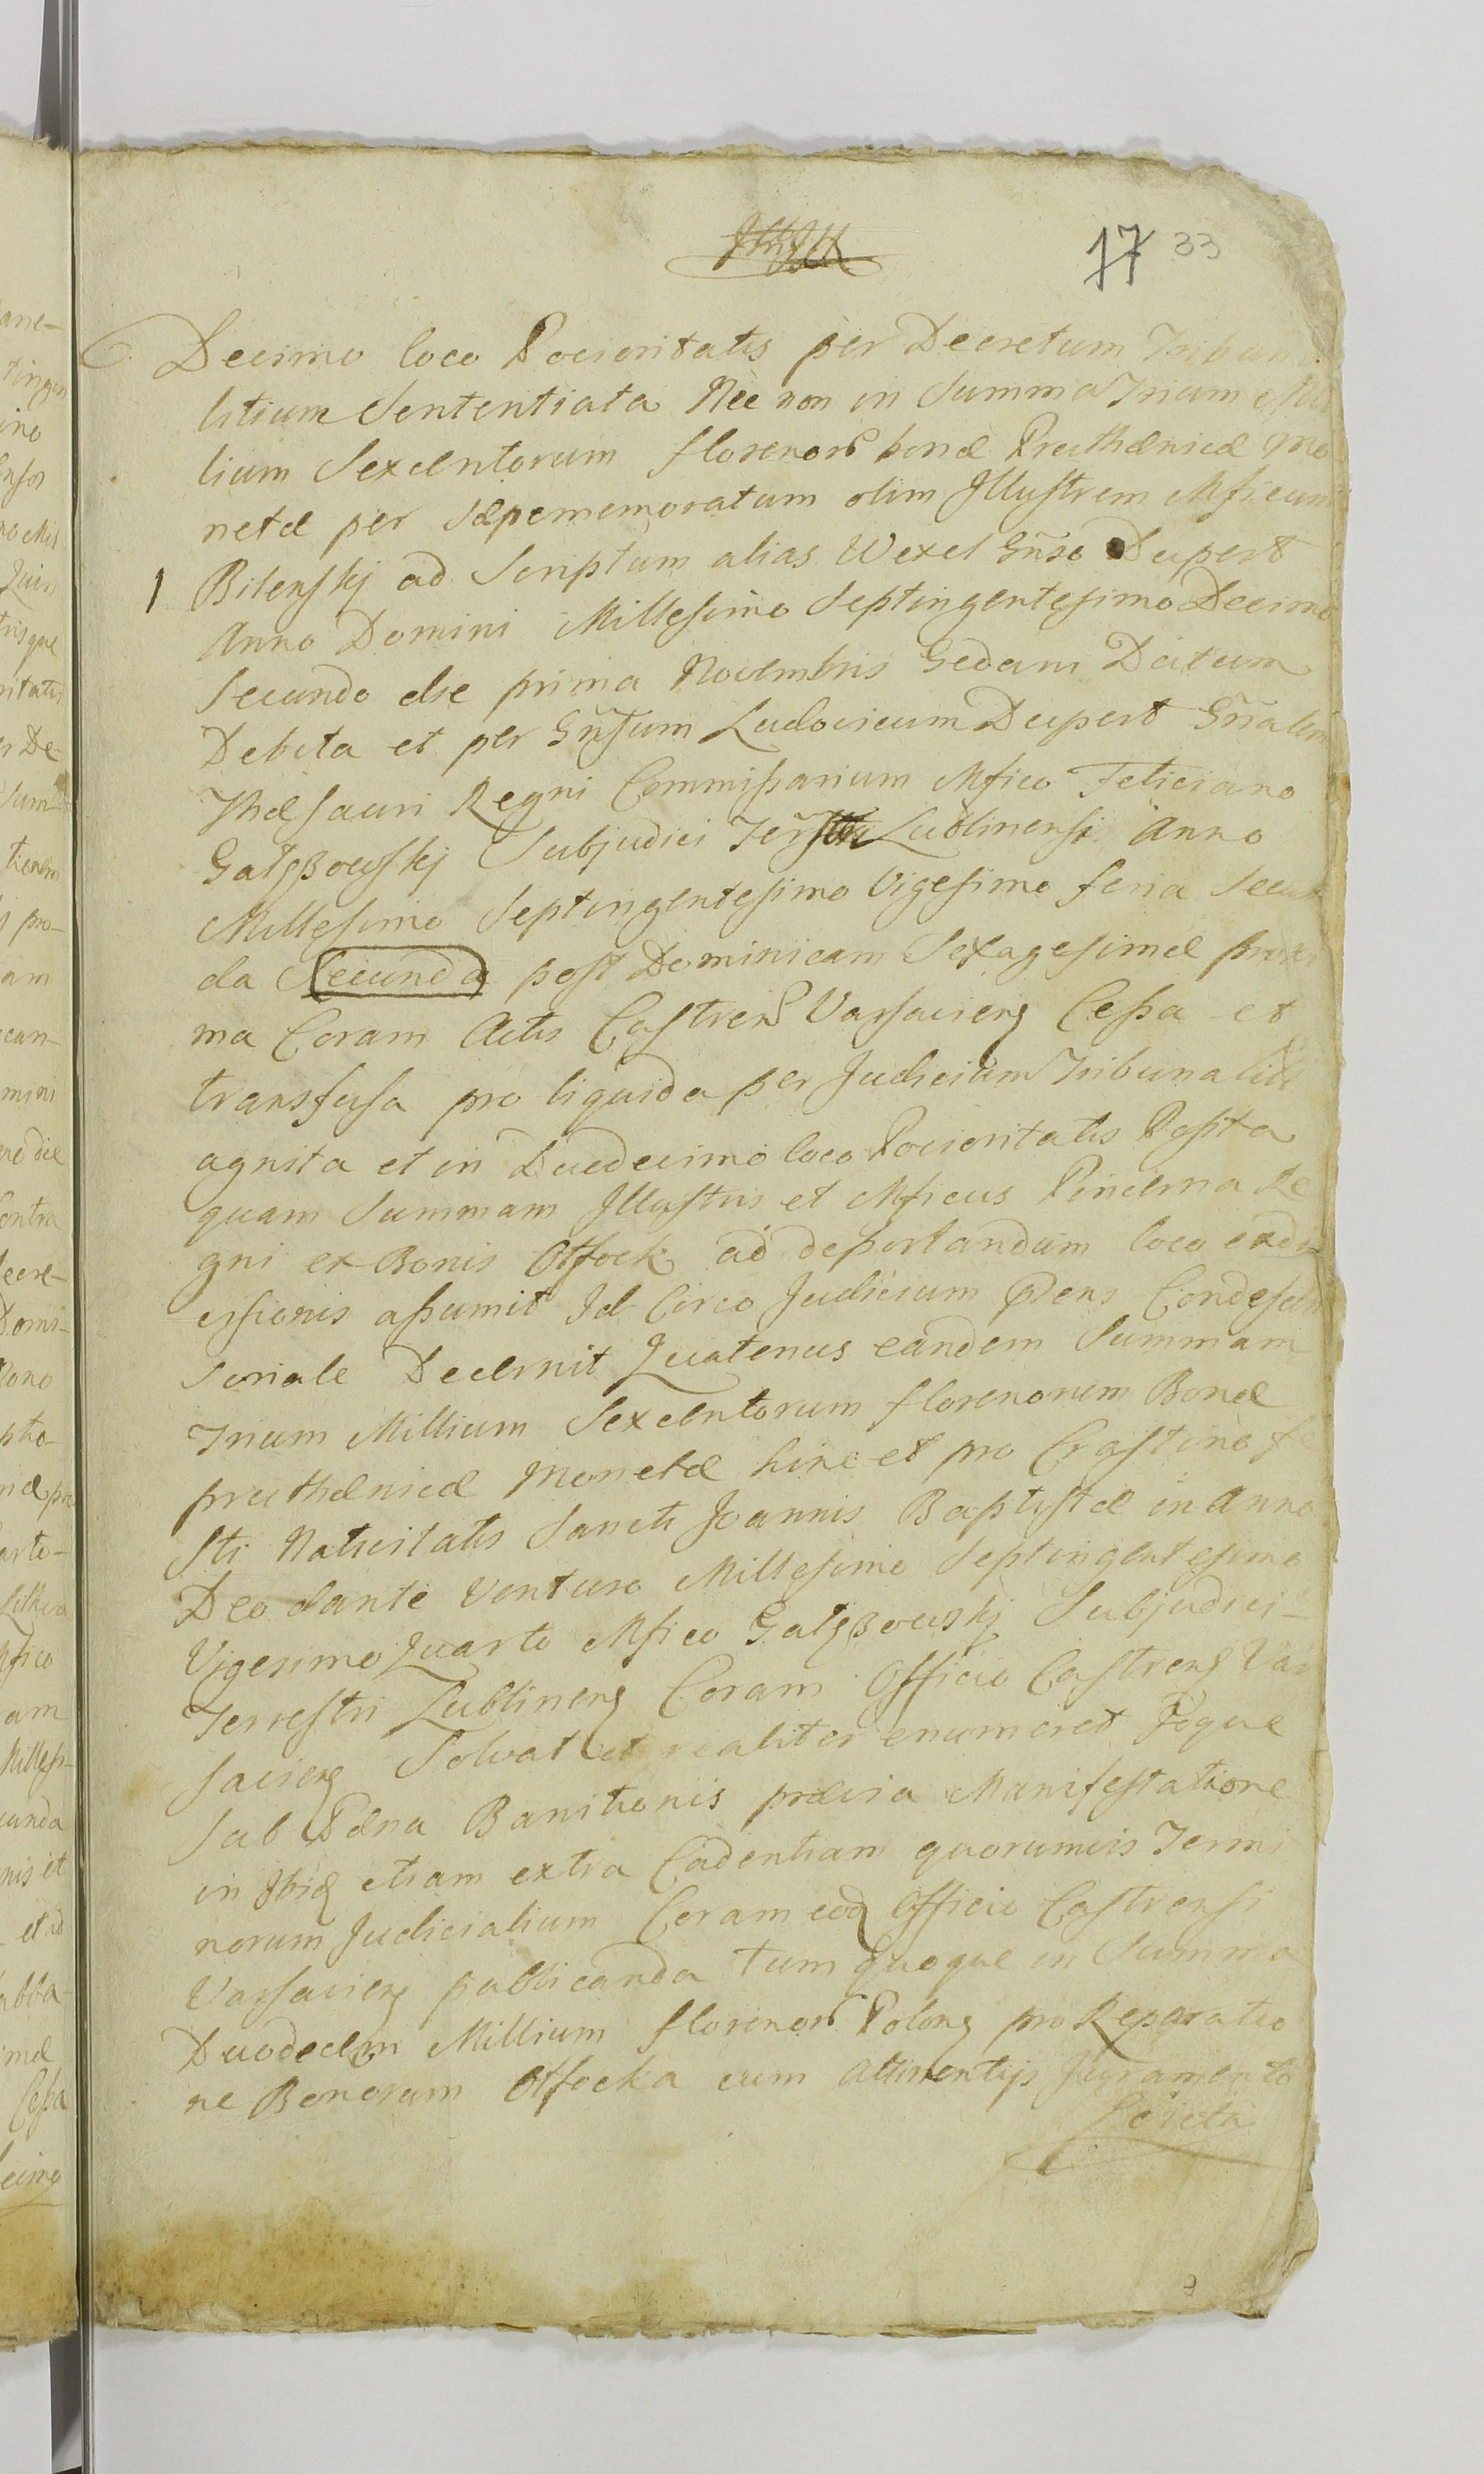 17 33
Decimo loco Pocioritatis per Decretum Tribuna
litium Sententiata Nec non in Summa Trium Mil
lium Sexcentorum florenorum bonæ Pruthenicæ Mo
netæ per sæpememoratum olim Illustrem Mficum
1 Bilenskj ad Scriptum alias Wexel Gñso Dupert
Anno Domini Millesimo Septingentesimo Decimo
Secundo die prima Novembris Gedani Datum
Debita et per Gñsum Ludovicum Dupert Gñalem
Thesauri Regni Commissarium Mfico Feliciano
Gałęzowskj Subjudici Lublinensi Anno
Millesimo Septingentesimo Vigesimo feria Secun
da Secunda post Dominicam Sexagesimæ proxi
ma Coram Actis Castren Varsavien Cessa et
transfusa pro liquida per Judicium Tribunalitium
agnita et in Duodecimo loco Pocioritatis Posita
quam Summam Illustris et Mficus Pincerna Re
gni ex Bonis Otfock ad deportandum loco exdi
visionis assumit Id Circo Judicium pñens Condescen
soriale Decernit Quatenus eandem Summam
Trium Millium Sexcentorum florenorum Bonæ
pruthenicæ Monetæ hinc et pro Crastino fe
sti Nativitatis Sancti Joannis Baptistæ in Anno
Deo dante Venturo Millesimo Septingentesimo
Vigesimo Quarto Mfico Gałęzowskj Subjudici
Terrestri Lublinen Coram Officio Castren Var
savien Solvat et realiter enumeret Idque
sub Pæna Banitionis prævia Manifestatione
in Ibid etiam extra Cadentiam quorumvis Termi
norum Judicialium Coram eod Officio Castrensi
Varsavien publicanda tum quoque in Summa
Duodecem Millium florenor Polon pro Reparatio
ne Bonorum Otfocka cum attinentijs Juramento